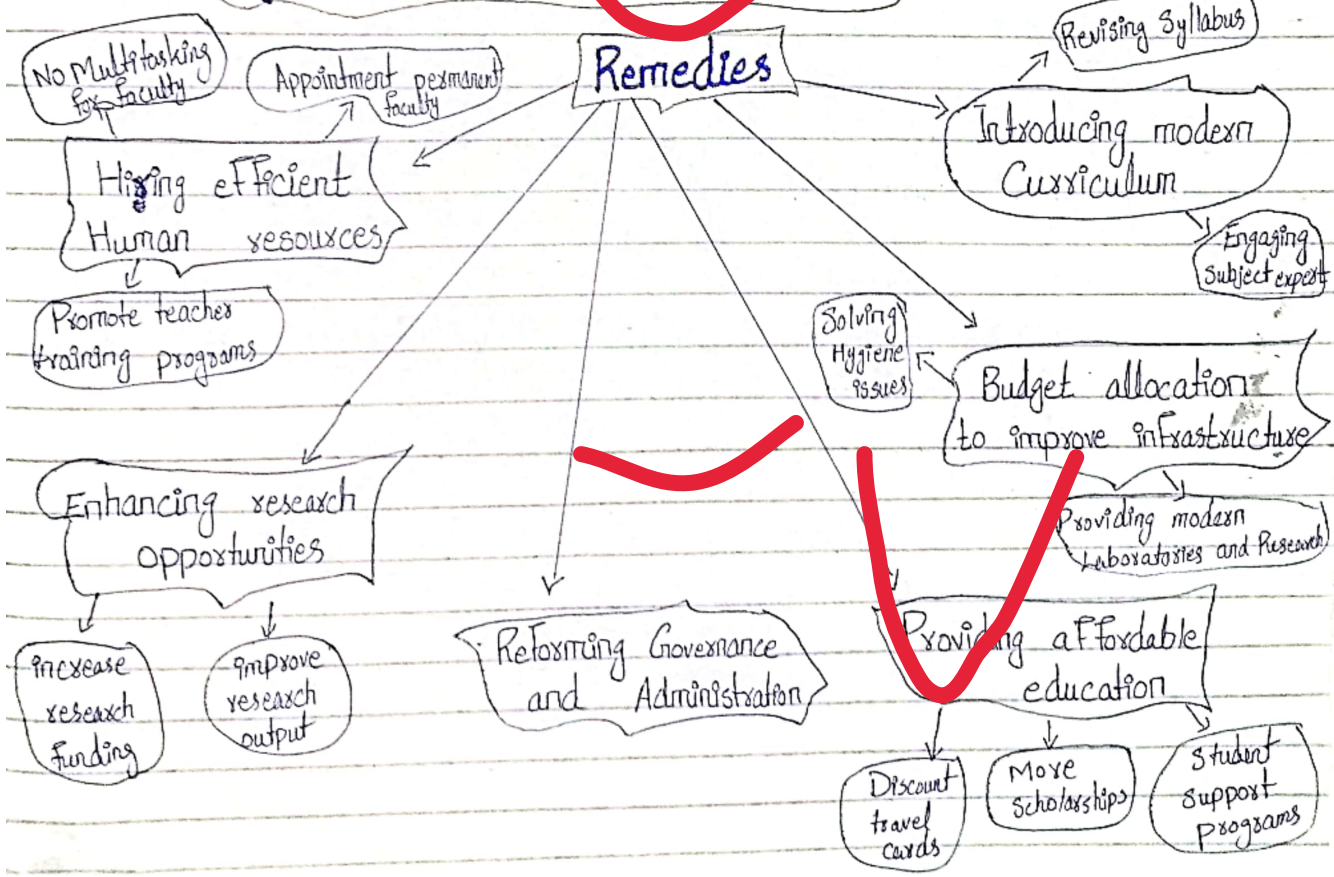 Remedies
No Multitasking
for faculty
Appointment permanent
faculty
Hiring efficient
Human resources
Promote teacher
training programs
Revising Syllabus
Introducing modern
Curriculum
Engaging
Subject expert
Solving
Hygiene
issues
Budget allocation
to improve infrastructure
Providing modern
Laboratories and Research
Enhancing research
opportunities
increase
research
funding
improve
research
output
Reforming Governance
and Administration
Providing affordable
education
Discount
travel
cards
More
Scholarships
Student
support
programs